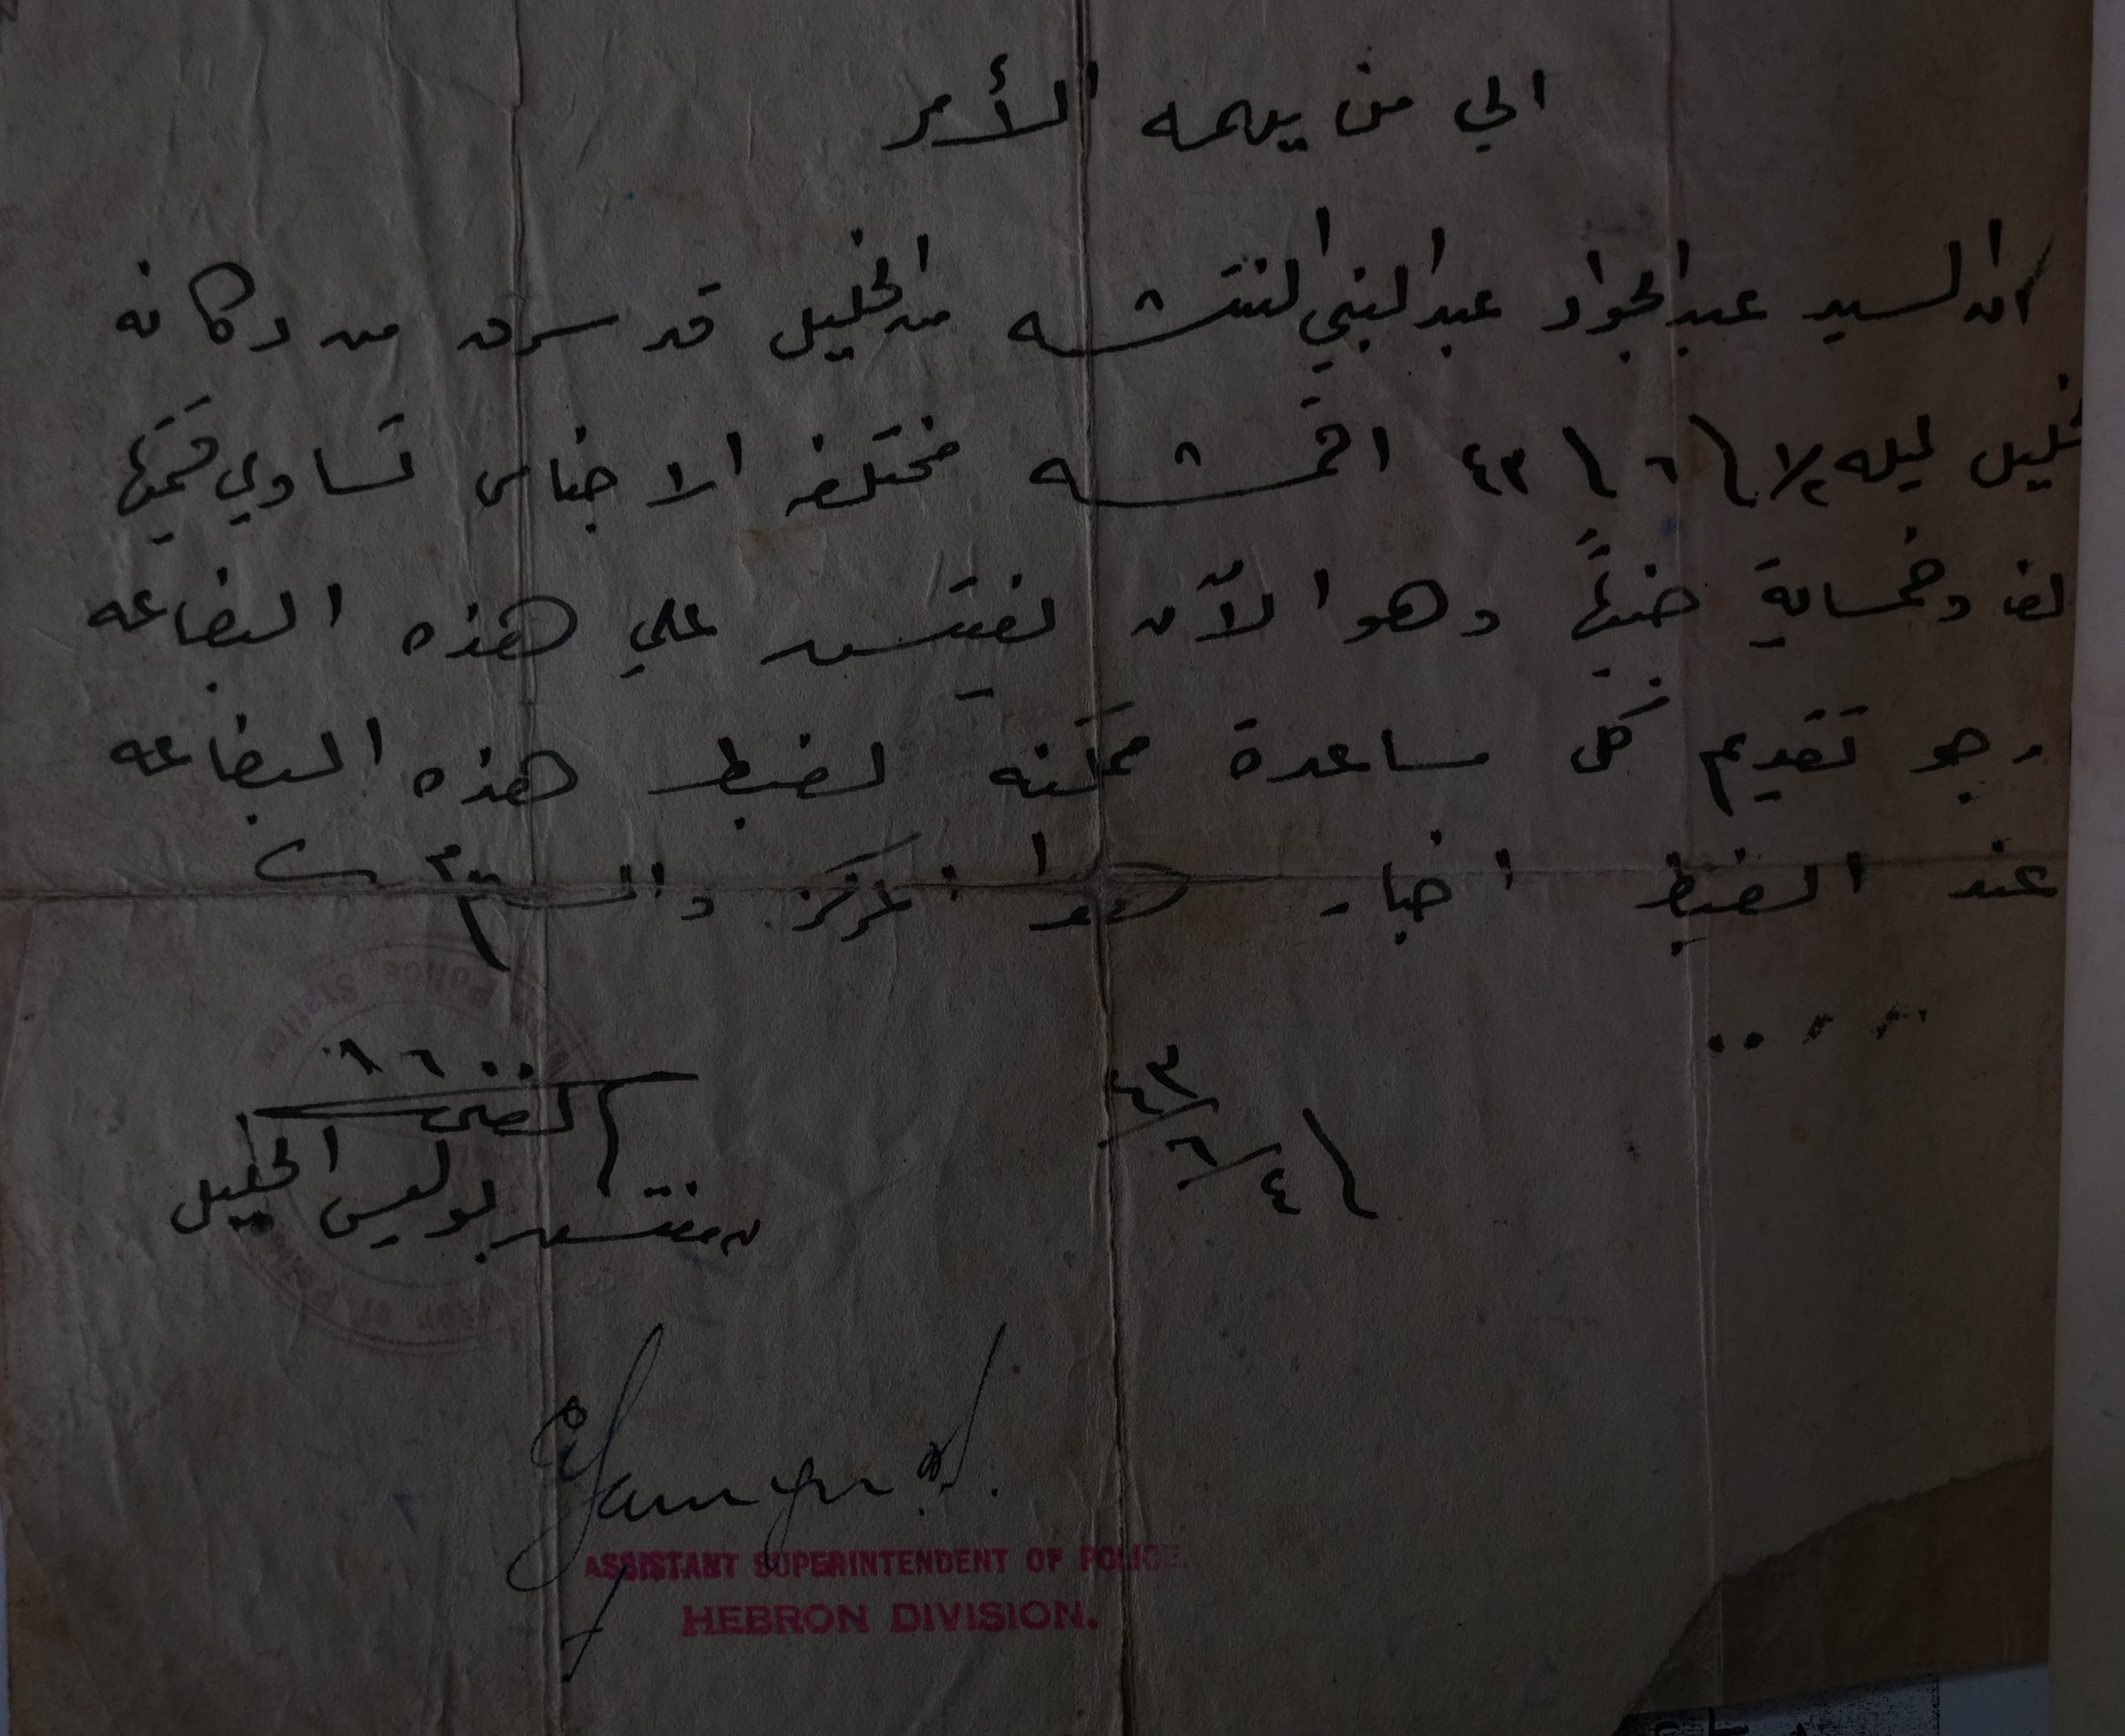 الي من يهمه الأمر
ان السيد عبد الجواد عبد النبي النتشه من الخليل قد سرق من دكانه
خليل ليله ١/٢ \ ٦ \ ٤٣ اقمشه مختلفه الاجناس تساوي قيمتها
لف وخمسماية جنيهاً وهو الآن يفتش علي هذه البضاعه
رجو تقديم كل مساعدة ممكنه لضبط هذه البضاعه
عند الضبط اخبار هذا المركز والسلام
Police Station
٤٣/٦/٤
مفتش بوليس الخليل
ASSISTANT SUPERINTENDENT OF POLICE
HEBRON DIVISION.